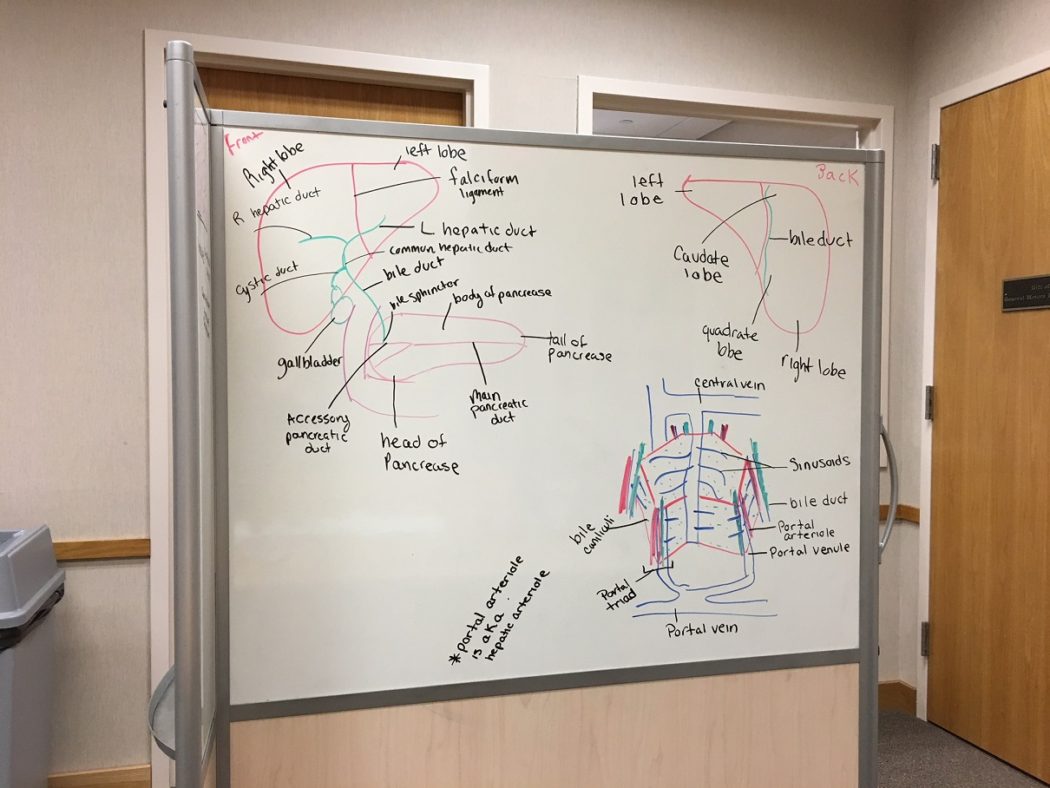 Front
Right lobe
left lobe
falciform
ligament
R hepatic duct
L hepatic duct
common hepatic duct
cystic duct
bile duct
bile sphincter
body of pancrease
tail of
pancrease
gallbladder
Accessory
pancreatic
duct
main
pancreatic
duct
head of
Pancrease
Back
left
lobe
bile duct
Caudate
lobe
quadrate
lobe
right lobe
central vein
Sinusoids
bile duct
bile
canliculi
Portal
arteriole
Portal venule
Portal
triad
Portal vein
*portal arteriole
is aka
hepatic arteriole